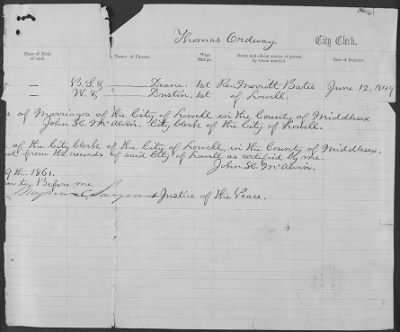 Thomas Ordway, City Clerk.
Place of Birth of each. Names of Parents. What Marriage. Name and official station of person by whom married. Date of Registry.
— B. S. & —— Deane. 1st Rev. Merritt Bates June 12. 1849
— W. & —— Dustin. 1st of Lowell.
s of Marriages of the City of Lowell in the County of Middlesex
John H. McAlvin. City Clerk of the City of Lowell.
of the City Clerk of the City of Lowell, in the County of Middlesex.
from the records of said City of Lowell as certified by me.
John H. McAlvin.
9th. 1861.
Before me
Justice of the Peace.